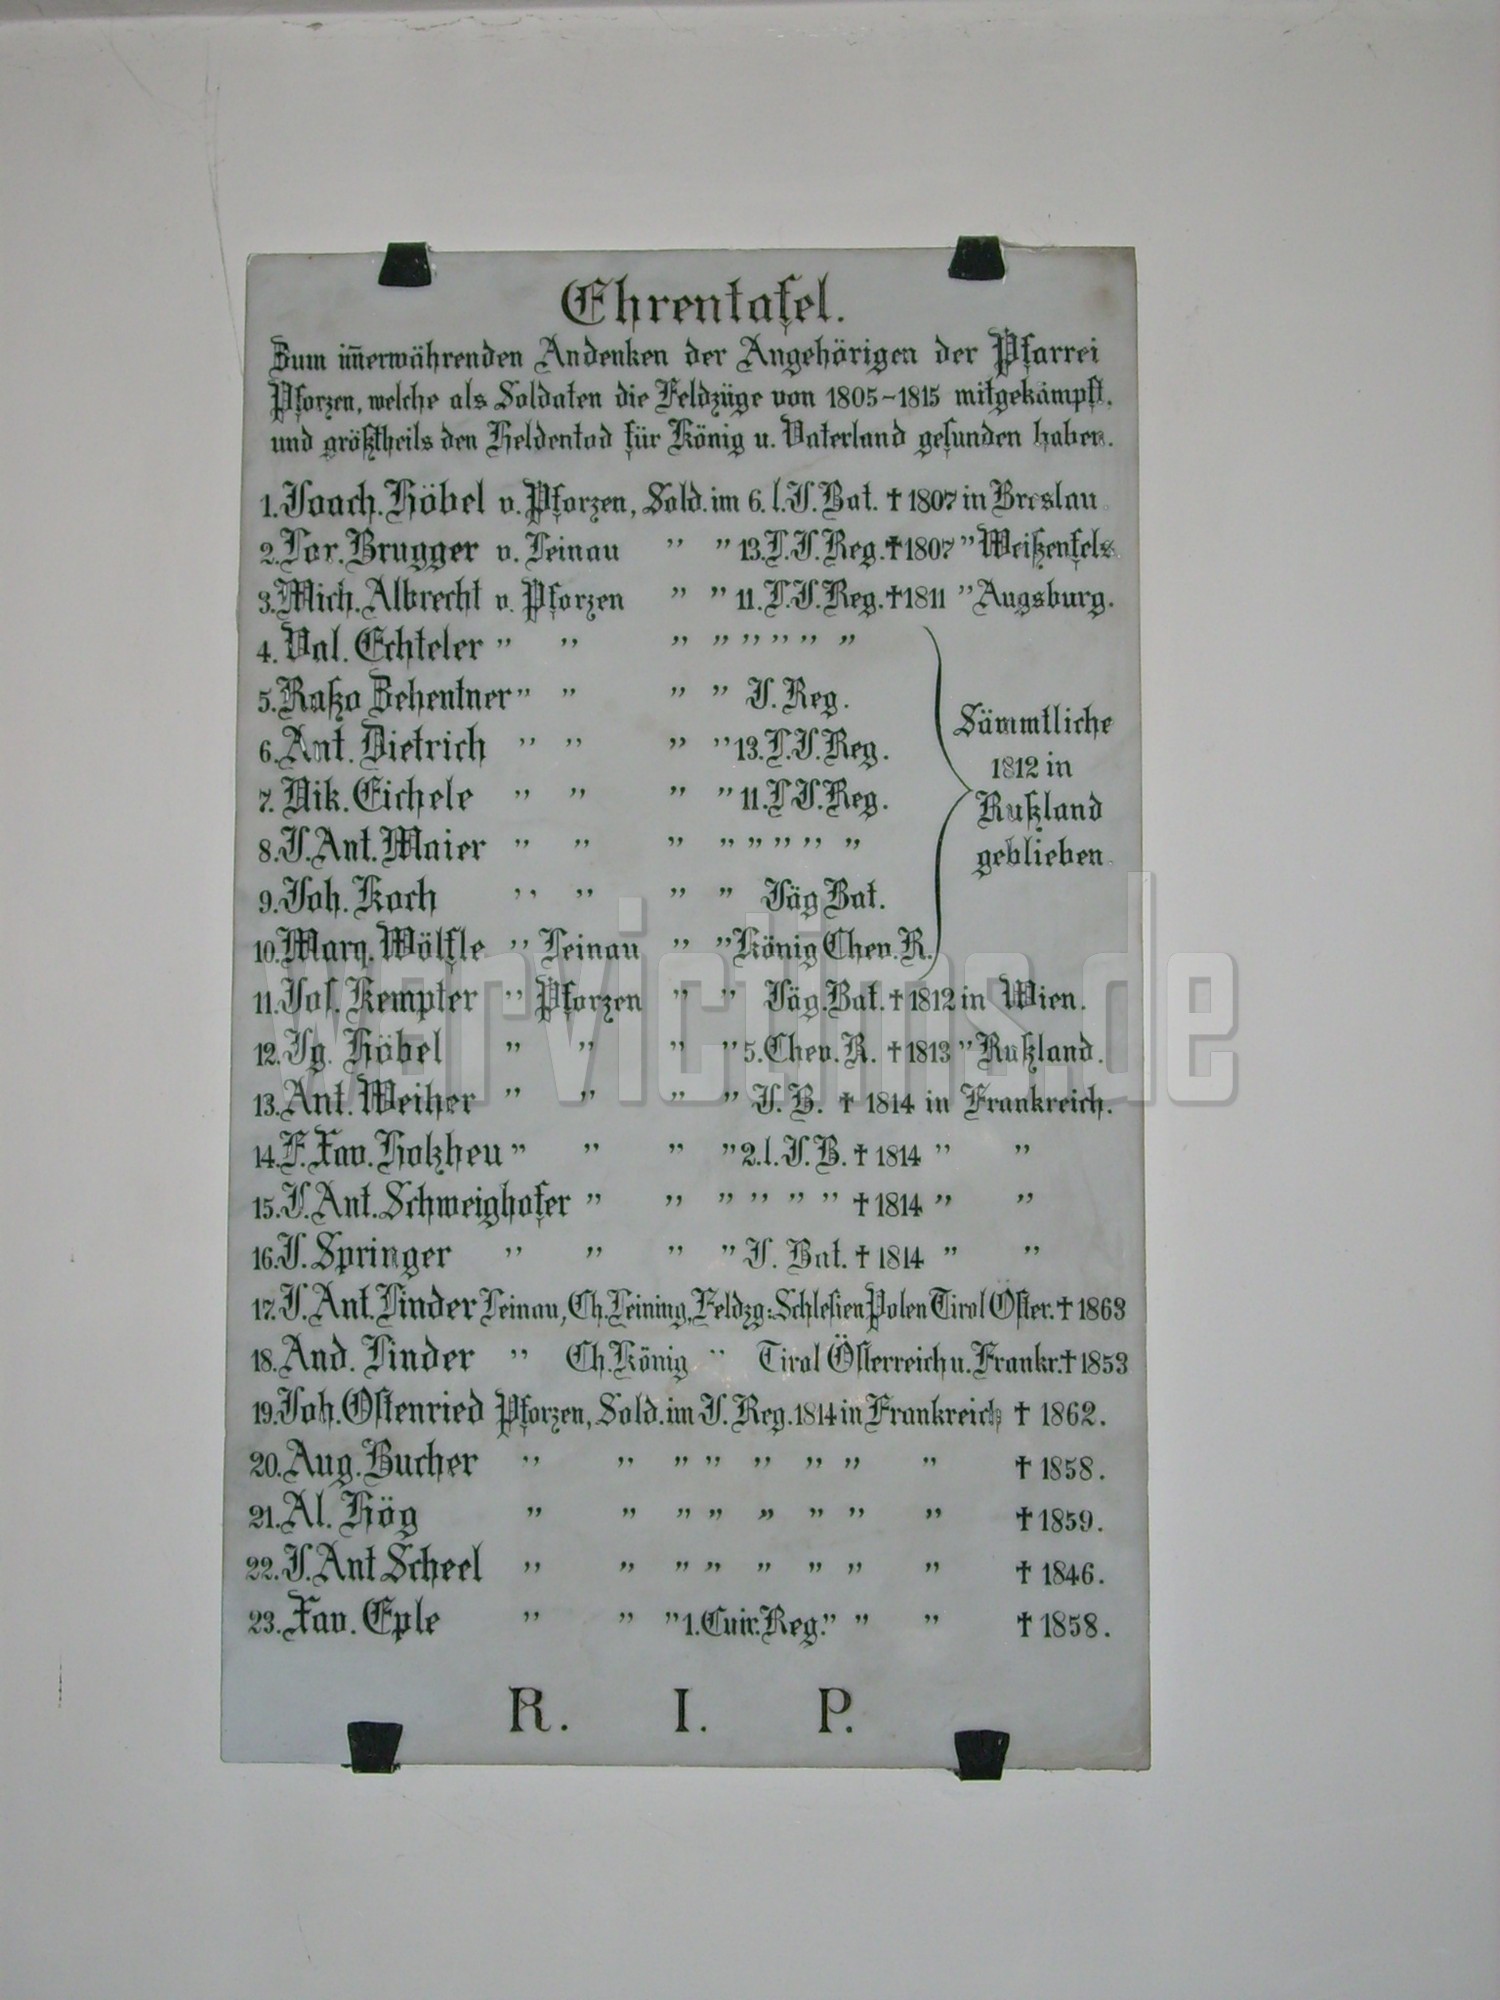 Ehrentafel.
Zum im̅erwährenden Andenken der Angehörigen der Pfarrei
Pforzen, welche als Soldaten die Feldzüge von 1805–1815 mitgekämpft,
und größtheils den Heldentod für König u. Vaterland gefunden haben.
1. Joach. Höbel v. Pforzen, Sold. im 6. l. J. Bat. † 1807 in Breslau.
2. Lor. Brugger v. Leinau " " 13. L. J. Reg. † 1807 " Weißenfels.
3. Mich. Albrecht v. Pforzen " " 11. L. J. Reg. † 1811 " Augsburg.
4. Val. Echteler " " " " " " " "
5. Raßo Zehentner " " " " J. Reg.
6. Ant. Dietrich " " " " 13. L. J. Reg.
7. Nik. Eichele " " " " 11. L J. Reg.
8. J. Ant. Maier " " " " " " " "
9. Joh. Koch " " " " Jäg Bat.
10. Marq. Wölfle " Leinau " " König Chev. R.
Sämmtliche
1812 in
Rußland
geblieben.
11. Jos. Kempter " Pforzen " " Jäg. Bat. † 1812 in Wien.
12. Jg. Höbel " " " " 5. Chev. R. † 1813 " Rußland.
13. Ant. Weiher " " " " J. B. † 1814 in Frankreich.
14. F. Xav. Holzheu " " " " 2. l. J. B. † 1814 " "
15. J. Ant. Schweighofer " " " " " " † 1814 " "
16. J. Springer " " " " J. Bat. † 1814 " "
17. J. Ant. Linder Leinau, Ch. Leining, Feldzg: Schlesien Polen Tirol Öster. † 1863
18. And. Linder " Ch. König " Tirol Österreich u. Frankr. † 1853
19. Joh. Ostenried Pforzen, Sold. im J. Reg. 1814 in Frankreich † 1862.
20. Aug. Bucher " " " " " " " " † 1858.
21. Al. Hög " " " " " " " " † 1859.
22. J. Ant Scheel " " " " " " " " † 1846.
23. Xav. Eple " " " 1. Cuir. Reg. " " " † 1858.
R. I. P.
warvictims.de